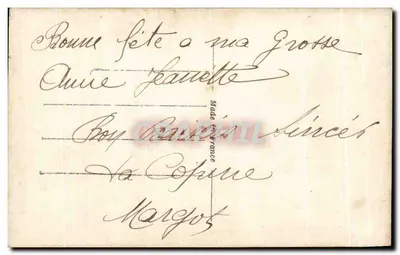 Bonne fête a ma Grosse
Anne Jeanette
Made in France
Bon Baisers Sincér
La Copine
Margot